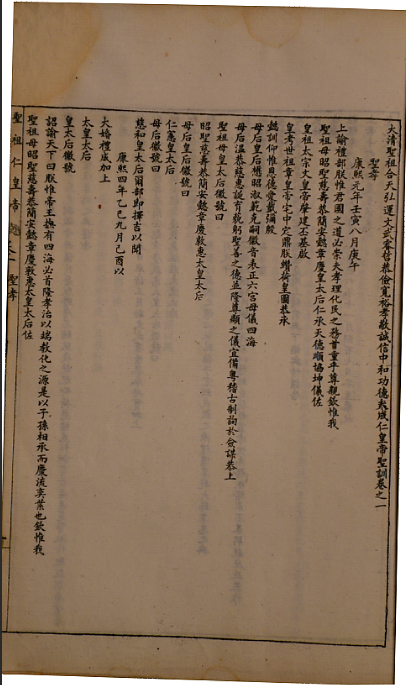 大清聖祖合天弘運文武睿哲恭儉寬裕孝敬誠信中和功德大成仁皇帝聖訓卷之一
聖孝
康熙元年壬寅八月庚午
上諭禮部朕惟君國之道必崇夫孝理化民之務首重乎尊親欽惟我
聖祖母昭聖慈壽恭簡安懿章慶皇太后仁承天德順協坤儀佐
皇祖太宗文皇帝肇建丕基啟
皇考世祖章皇帝定中定鼎朕纘荷皇圖恭承
懿訓仰惟恩德愛戴彌殷
母后皇后懋昭淑範克嗣徽音表正六宮母儀四海
母后溫恭慈惠誕育藐躬聖善之德並隆尊顯之儀宜備粵稽古制詢於僉謀恭上
聖祖母皇太后徽號曰
昭聖慈壽恭簡安懿章慶敦惠太皇太后
母后皇后徽號曰
仁憲皇太后
母后徽號曰
慈和皇太后爾部即擇吉以聞
康熙四年乙巳九月己酉以
大婚禮成加上
太皇太后
皇太后徽號
詔諭天下曰朕惟帝王撫有四海必首隆孝治以端教化之源是以子孫相承而慶流奕葉也欽惟我
聖祖母昭聖慈壽恭簡安懿章慶敦惠太皇太后佐
聖祖仁皇帝聖訓 卷一 聖孝